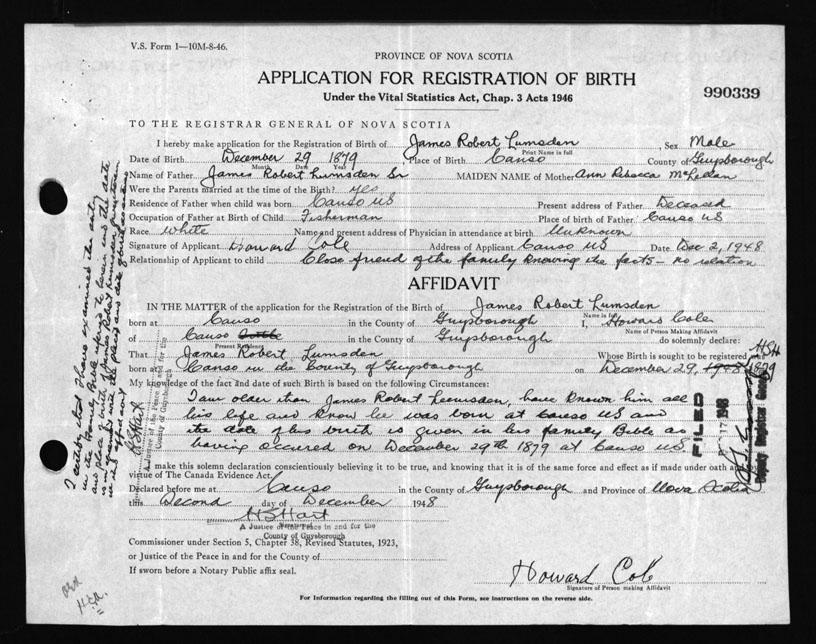 V.S. Form 1—10M-8-46.
PROVINCE OF NOVA SCOTIA
APPLICATION FOR REGISTRATION OF BIRTH
Under the Vital Statistics Act, Chap. 3 Acts 1946
990339
TO THE REGISTRAR GENERAL OF NOVA SCOTIA
I hereby make application for the Registration of Birth of James Robert Lumsden, Sex Male
Print Name in full
Date of Birth December 29 1879 Place of Birth Canso County of Guysborough
Month Date Year
Name of Father James Robert Lumsden Sr MAIDEN NAME of Mother Ann Rebecca McLellan
Were the Parents married at the time of the Birth? yes
Residence of Father when child was born Canso NS Present address of Father Deceased
Occupation of Father at Birth of Child Fisherman Place of birth of Father Canso NS
Race White Name and present address of Physician in attendance at birth Unknown
Signature of Applicant Howard Cole Address of Applicant Canso NS Date Dec 2, 1948
Relationship of Applicant to child Close friend of the family knowing the facts - no relation
AFFIDAVIT
IN THE MATTER of the application for the Registration of the Birth of James Robert Lumsden
Name in full
born at Canso in the County of Guysborough I, Howard Cole
Name of Person Making Affidavit
of Canso in the County of Guysborough do solemnly declare:
Present Residence
That James Robert Lumsden Whose Birth is sought to be registered was
HSH
born at Canso in the County of Guysborough on December 29, 1948 1879
My knowledge of the fact and date of such Birth is based on the following Circumstances:
I am older than James Robert Lumsden, have known him all
his life and know he was born at Canso NS and
the date of his birth is given in his family Bible as
having occured on December 29th 1879 at Canso NS.
I make this solemn declaration conscientiously believing it to be true, and knowing that it is of the same force and effect as if made under oath and
virtue of The Canada Evidence Act.
Declared before me at Canso in the County of Guysborough and Province of Nova Scotia
this Second day of December 1948
HSHart
A Justice of the Peace in and for the
County of Guysborough
Commissioner under Section 5, Chapter 38, Revised Statutes, 1923,
or Justice of the Peace in and for the County of
If sworn before a Notary Public affix seal.
Howard Cole
Signature of Person making Affidavit
For Information regarding the filling out of this Form, see instructions on the reverse side.
I certify that I have examined the entry
in the Family Bible
and place of birth of James Robert Lumsden
HSHart
A Justice of the Peace in and for
County of Guysborough
FILED
17 1948
Deputy Registrar General